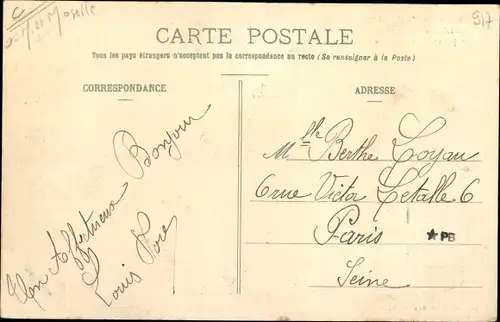 Mthe et Moselle
517
CARTE POSTALE
Tous les pays étrangers n'acceptent pas la correspondance au recto (Se renseigner à la Poste)
CORRESPONDANCE
Un Affectueux Bonjour
Louis
ADRESSE
Mlle Berthe Loyau
6 rue Victor Letalle 6
Paris
★ PB
Seine